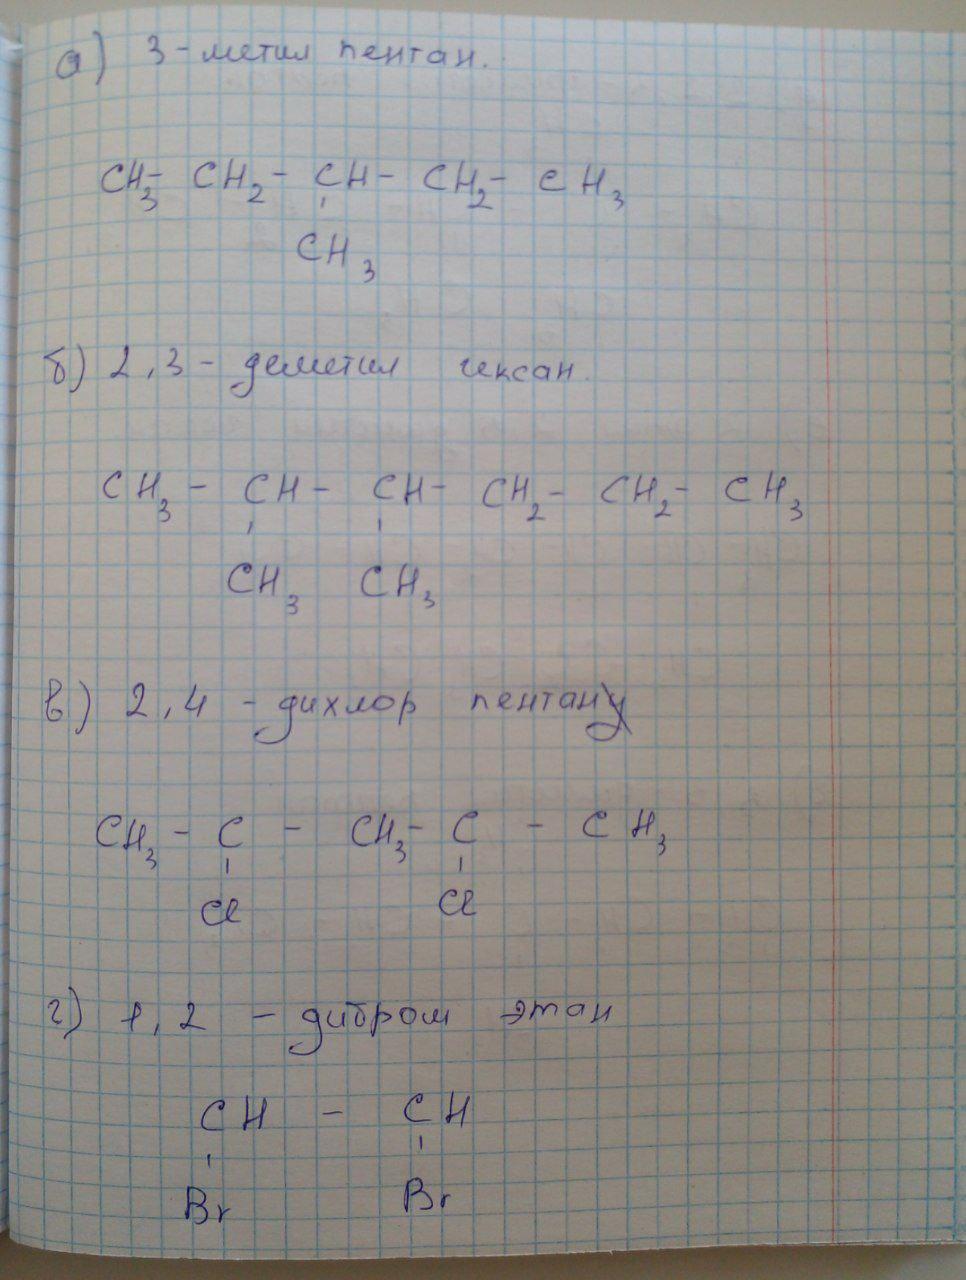 а) 3 - метил пентан.
CH3 - CH2 - CH - CH2 - CH3
CH3
б) 2,3 - деметил гексан.
CH3 - CH - CH - CH2 - CH2 - CH3
CH3 CH3
в) 2,4 - дихлор пентан
CH3 - C - CH3 - C - CH3
Cl Cl
г) 1,2 - дибром этан
CH - CH
Br Br